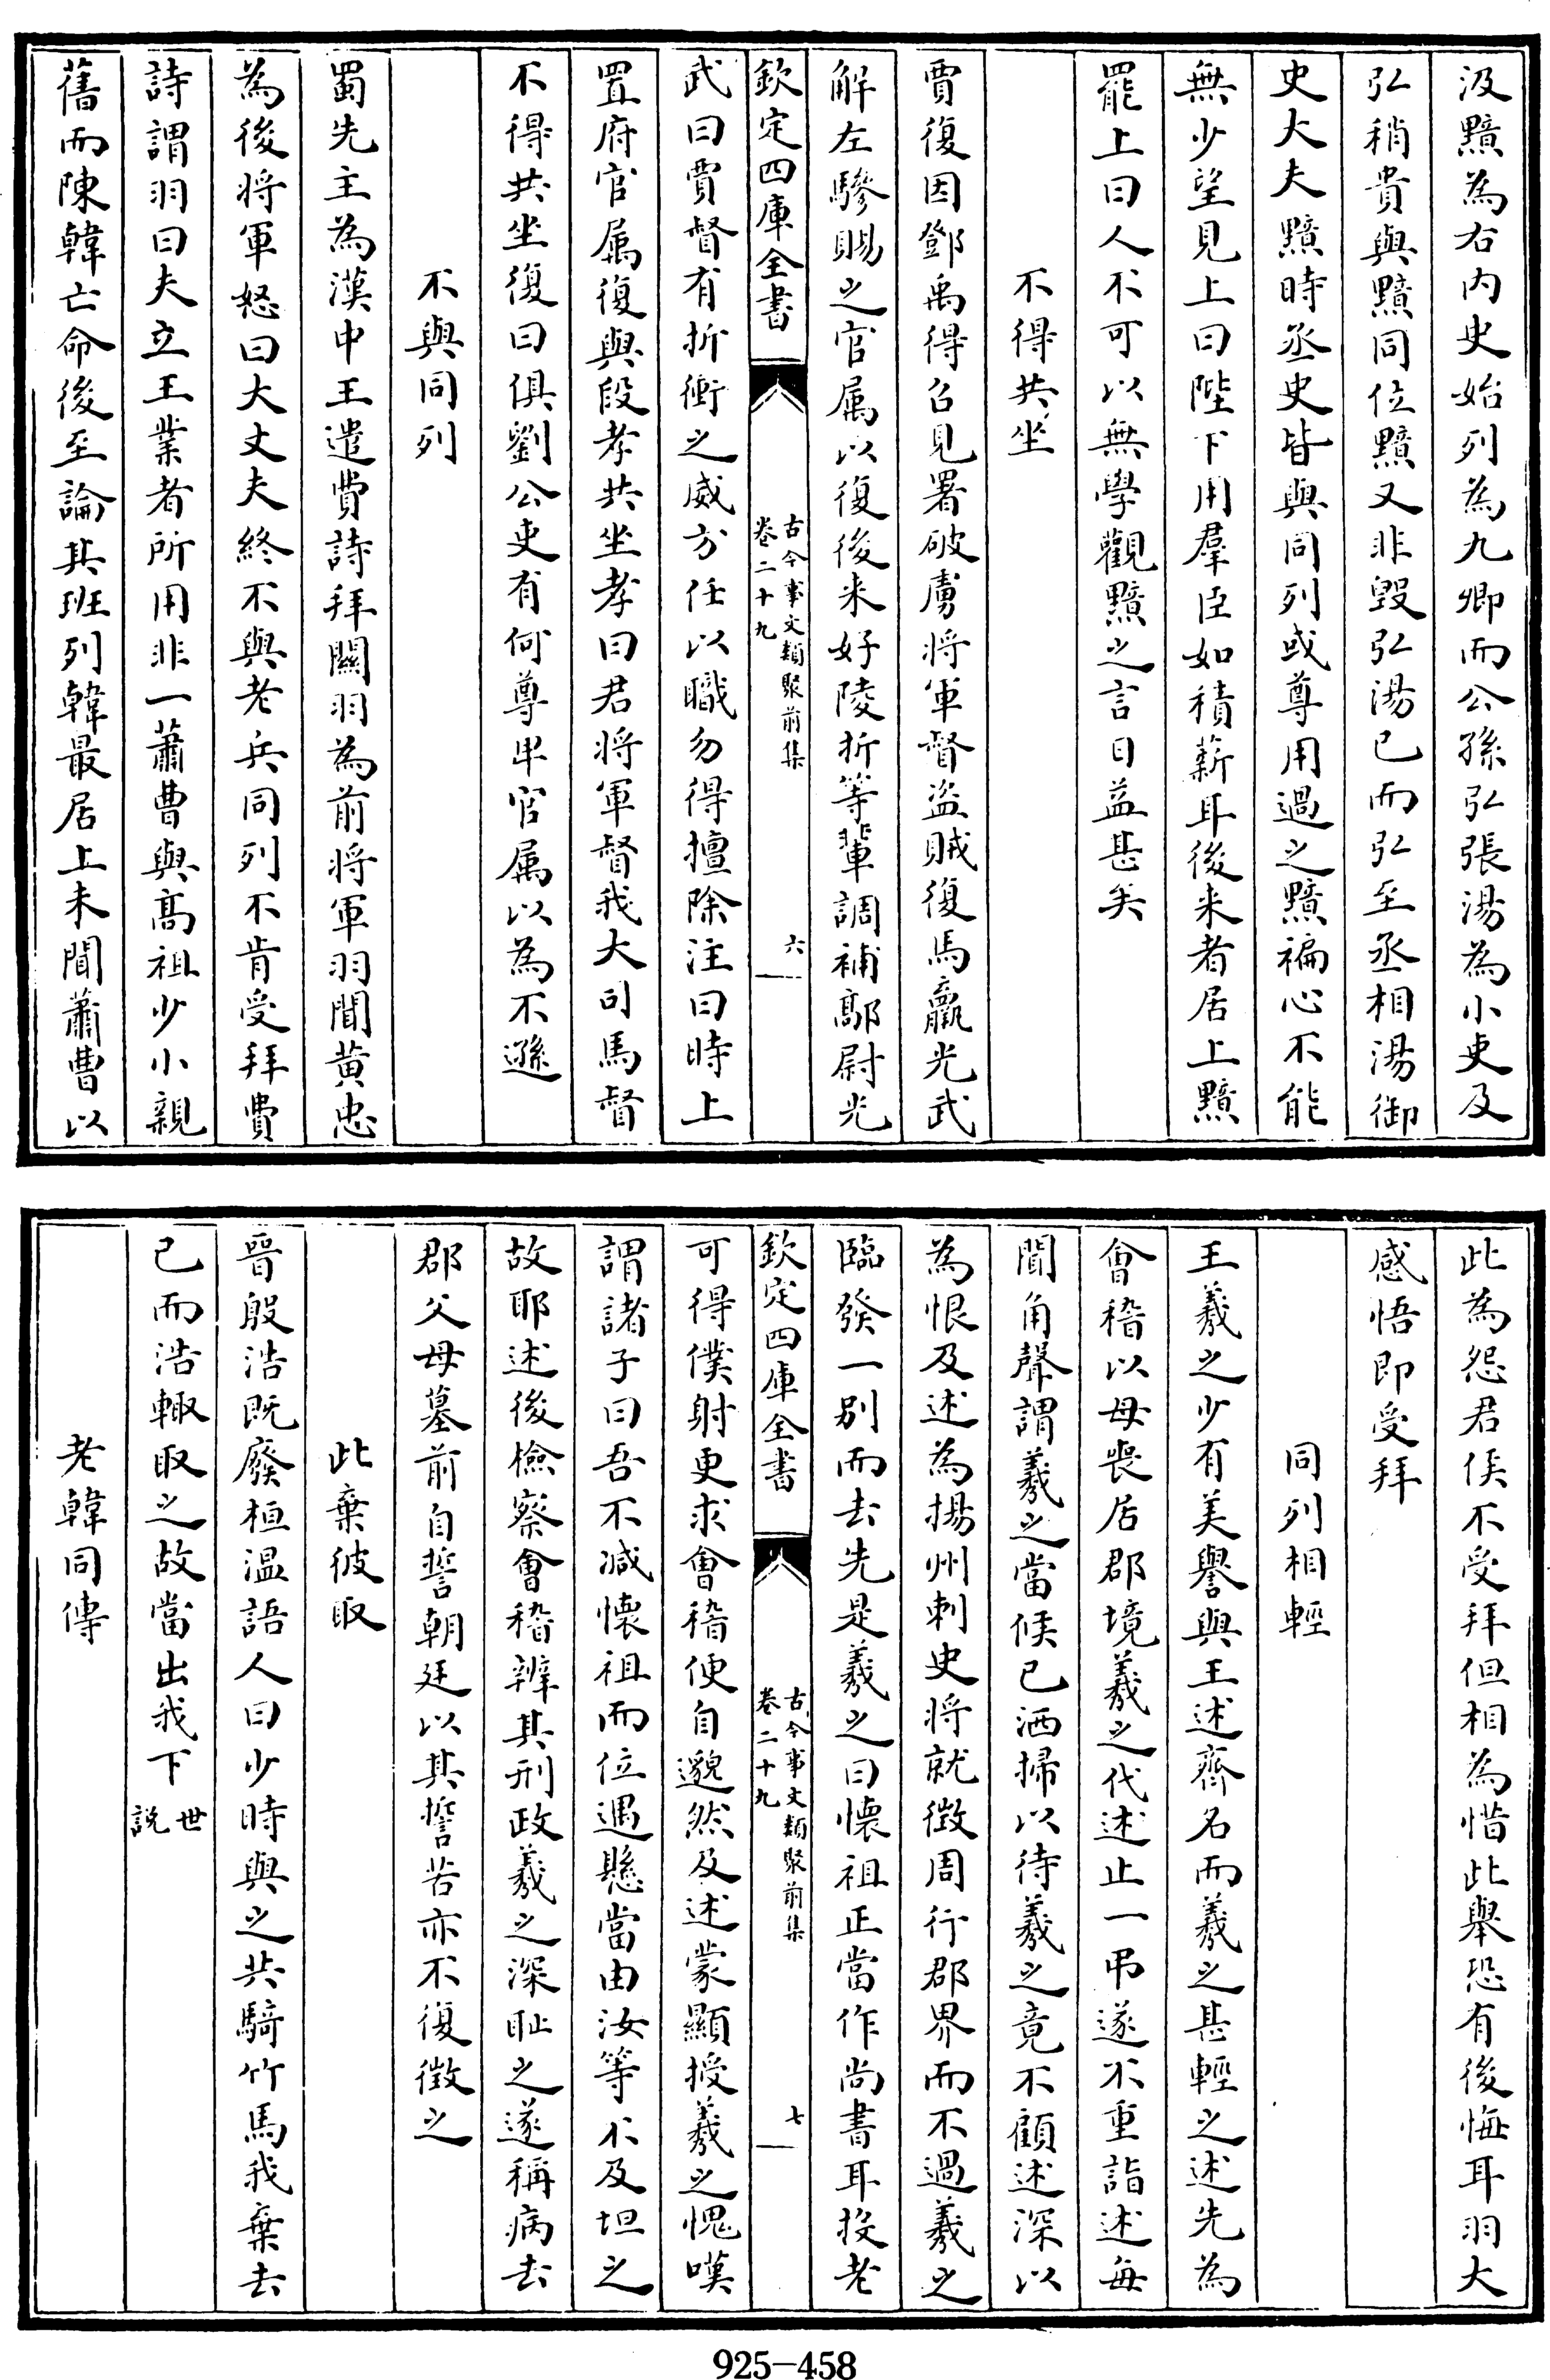 汲黯為右內史始列為九卿而公孫弘張湯為小吏及
弘稍貴與黯同位黯又非毀弘湯已而弘至丞相湯御
史大夫黯時丞史皆與同列或尊用過之黯褊心不能
無少望見上曰陛下用羣臣如積薪耳後来者居上黯
罷上曰人不可以無學觀黯之言日益甚矣
不得共坐
賈復因鄧禹得召見署破虜將軍督盗賊復馬羸光武
解左驂賜之官属以復後来好陵折等輩調補鄗尉光
欽定四庫全書
古今事文類聚前集
卷二十九
六
武曰賈督有折衝之威方任以職勿得擅除注曰時上
置府官属復與段孝共坐孝曰君將軍督我大司馬督
不得共坐復曰俱劉公吏有何尊卑官属以為不遜
不與同列
蜀先主為漢中王遣費詩拜關羽為前將軍羽聞黄忠
為後將軍怒曰大丈夫終不與老兵同列不肯受拜費
詩謂羽曰夫立王業者所用非一蕭曹與髙祖少小親
舊而陳韓亡命後至論其班列韓最居上未聞蕭曹以
此為怨君侯不受拜但相為惜此舉恐有後悔耳羽大
感悟即受拜
同列相輕
王羲之少有美譽與王述齊名而羲之甚輕之述先為
會稽以母喪居郡境羲之代述止一弔遂不重詣述每
聞角聲謂羲之當候已洒掃以待羲之竟不顧述深以
為恨及述為揚州刺史將就徴周行郡界而不過羲之
臨發一别而去先是羲之曰懷祖正當作尚書耳投老
欽定四庫全書
古今事文類聚前集
卷二十九
七
可得僕射更求會稽便自邈然及述蒙顯授羲之愧嘆
謂諸子曰吾不减懷祖而位遇懸當由汝等不及坦之
故耶述後檢察會稽辨其刑政羲之深耻之遂稱病去
郡父母墓前自誓朝廷以其誓苦亦不復徴之
此棄彼取
晉殷浩既廢桓温語人曰少時與之共騎竹馬我棄去
已而浩輙取之故當出我下世說
老韓同傳
925-458